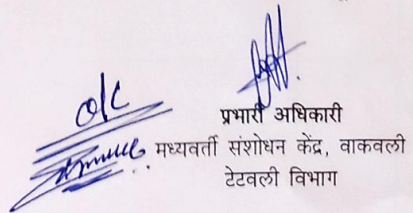 o/c
प्रभारी अधिकारी
मध्यवर्ती संशोधन केंद्र, वाकवली
टेटवली विभाग